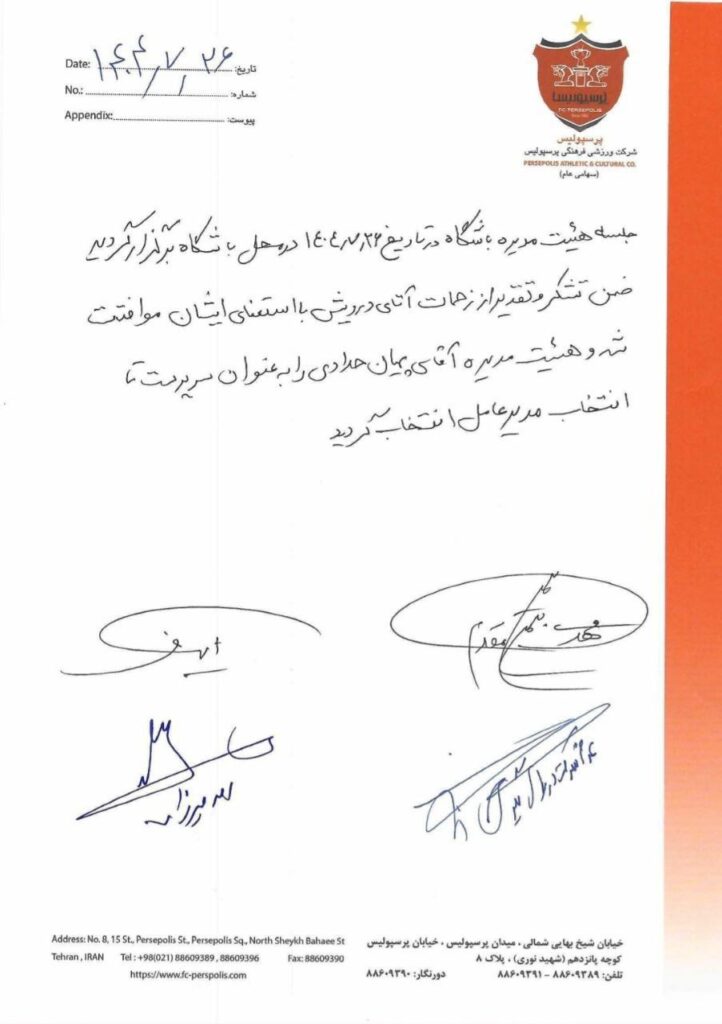 Date: ۱۴۰۴/۷/۲۶ تاریخ:
No.: شماره:
Appendix: پیوست:
پرسپولیس
FC PERSEPOLIS
پرسپولیس
شرکت ورزشی فرهنگی پرسپولیس
PERSEPOLIS ATHLETIC & CULTURAL CO.
(سهامی عام)
جلسه هیئت مدیره باشگاه در تاریخ ۱۴۰۴/۷/۲۶ در محل باشگاه برگزار گردید
ضمن تشکر و تقدیر از زحمات آقای درویش با استعفای ایشان موافقت
شد و هیئت مدیره آقای پیمان حدادی را به عنوان سرپرست تا
انتخاب مدیر عامل انتخاب گردید
Address: No. 8, 15 St., Persepolis St., Persepolis Sq., North Sheykh Bahaee St
Tehran , IRAN Tel : +98(021) 88609389 , 88609396 Fax: 88609390
https://www.fc-perspolis.com
خیابان شیخ بهایی شمالی ، میدان پرسپولیس ، خیابان پرسپولیس
کوچه پانزدهم (شهید نوری) ، پلاک ۸
تلفن: ۸۸۶۰۹۳۸۹ - ۸۸۶۰۹۳۹۱ دورنگار: ۸۸۶۰۹۳۹۰